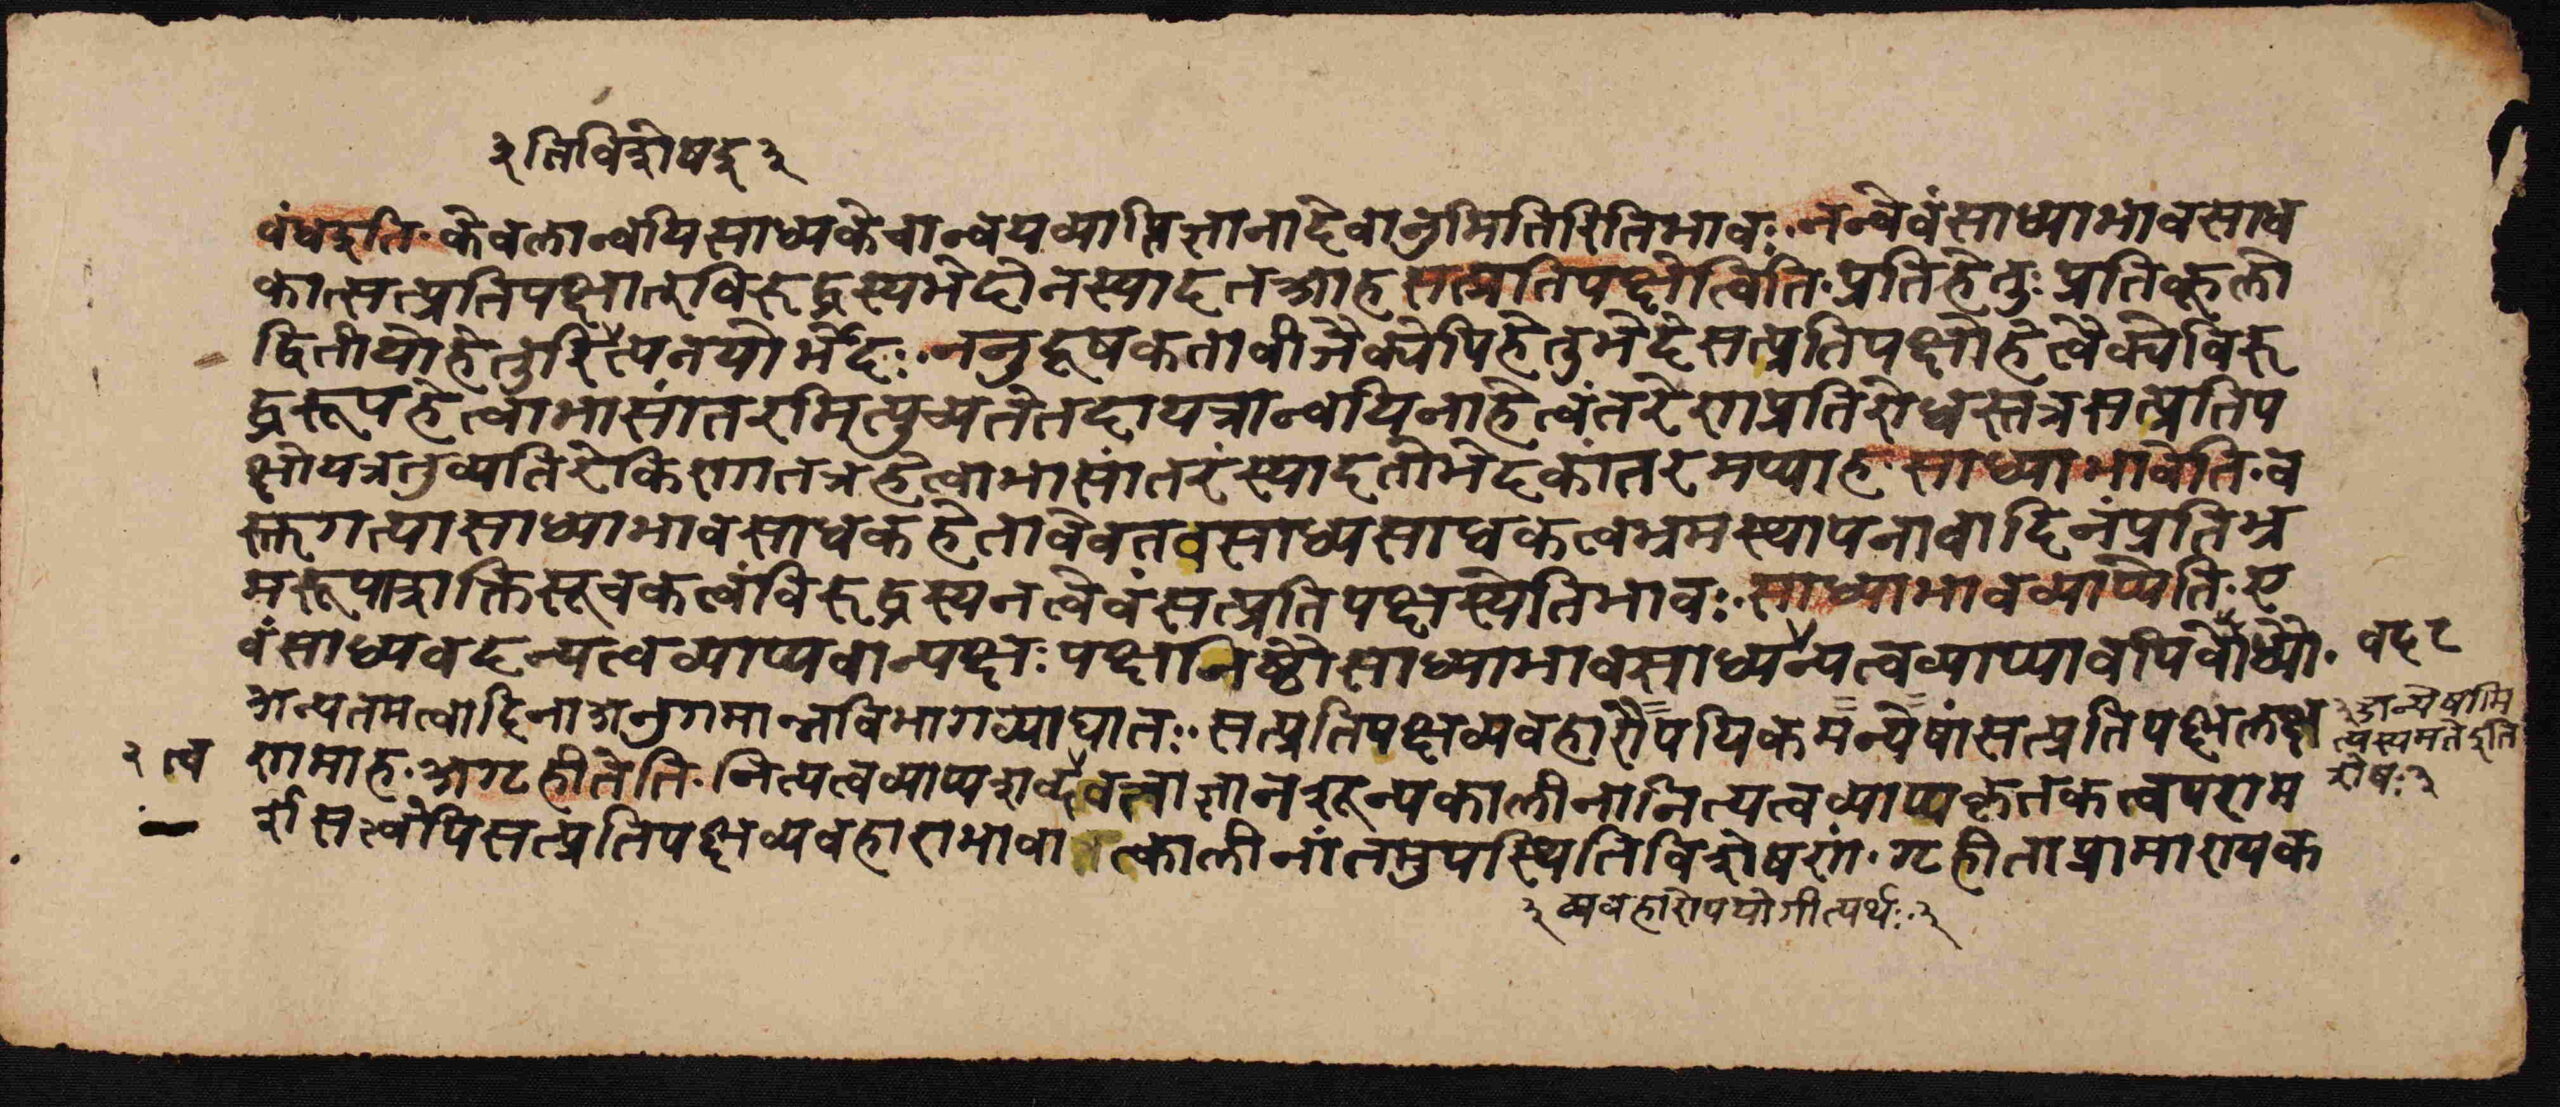 ३ तिविशेषइ ३
वंधइति. केवलान्वयिसाध्यकेचान्वयव्याप्तिज्ञानादेवानुमितिरितिभावः. नन्वेवंसाध्याभावसाध
कात्सत्प्रतिपक्षात्विरुद्धस्यभेदोनस्यादतआह सत्प्रतिपक्षेत्विति. प्रतिहेतुः प्रतिकूलो
द्वितीयोहेतुरित्यनयोर्भेदः. ननुदूषकतावीजैक्येपिहेतुभेदेसत्प्रतिपक्षोहेत्वैक्येविरु
द्धरूपहेत्वाभासांतरमित्युच्यतेतदायत्रान्वयिनाहेत्वंतरेणप्रतिरोधस्तत्रसत्प्रतिप
क्षोयत्रतुव्यतिरेकिणातत्रहेत्वाभासांतरंस्यादतोभेदकांतरमप्याह. साध्याभावेति. व
स्तुगत्यासाध्याभावसाधकहेतावेवतवसाध्यसाधकत्वभ्रमस्थापनावादिनंप्रतिभ्र
मरूपाशक्तिसूचकत्वंविरुद्धस्यनत्वेवंसत्प्रतिपक्षस्येतिभावः. साध्याभावव्याप्येति. ए
वंसाध्यवदन्यत्वव्याप्यवान्पक्षः पक्षनिष्ठौसाध्याभावसाध्यन्यत्वव्याप्यावपिवोध्यौ. वद २
अन्यतमत्वादिनाअनुगमान्नविभागव्याघातः. सत्प्रतिपक्षव्यवहारौपयिकमन्येषांसत्प्रतिपक्षलक्ष
३ अन्येषामि
त्यस्यमतेइति
शेषः. ३
२ त्व णमाह. अगृहीतेति. नित्यत्वव्याप्यशब्दवत्ताज्ञानशून्यकालीनानित्यत्वव्याप्यकृतकत्वपराम
र्शसत्वेपिसत्प्रतिपक्षव्यवहाराभावात्कालीनांतमुपस्थितिविशेषणं. गृहीताप्रामाण्यक
३ व्यवहारोपयोगीत्यर्थः. ३